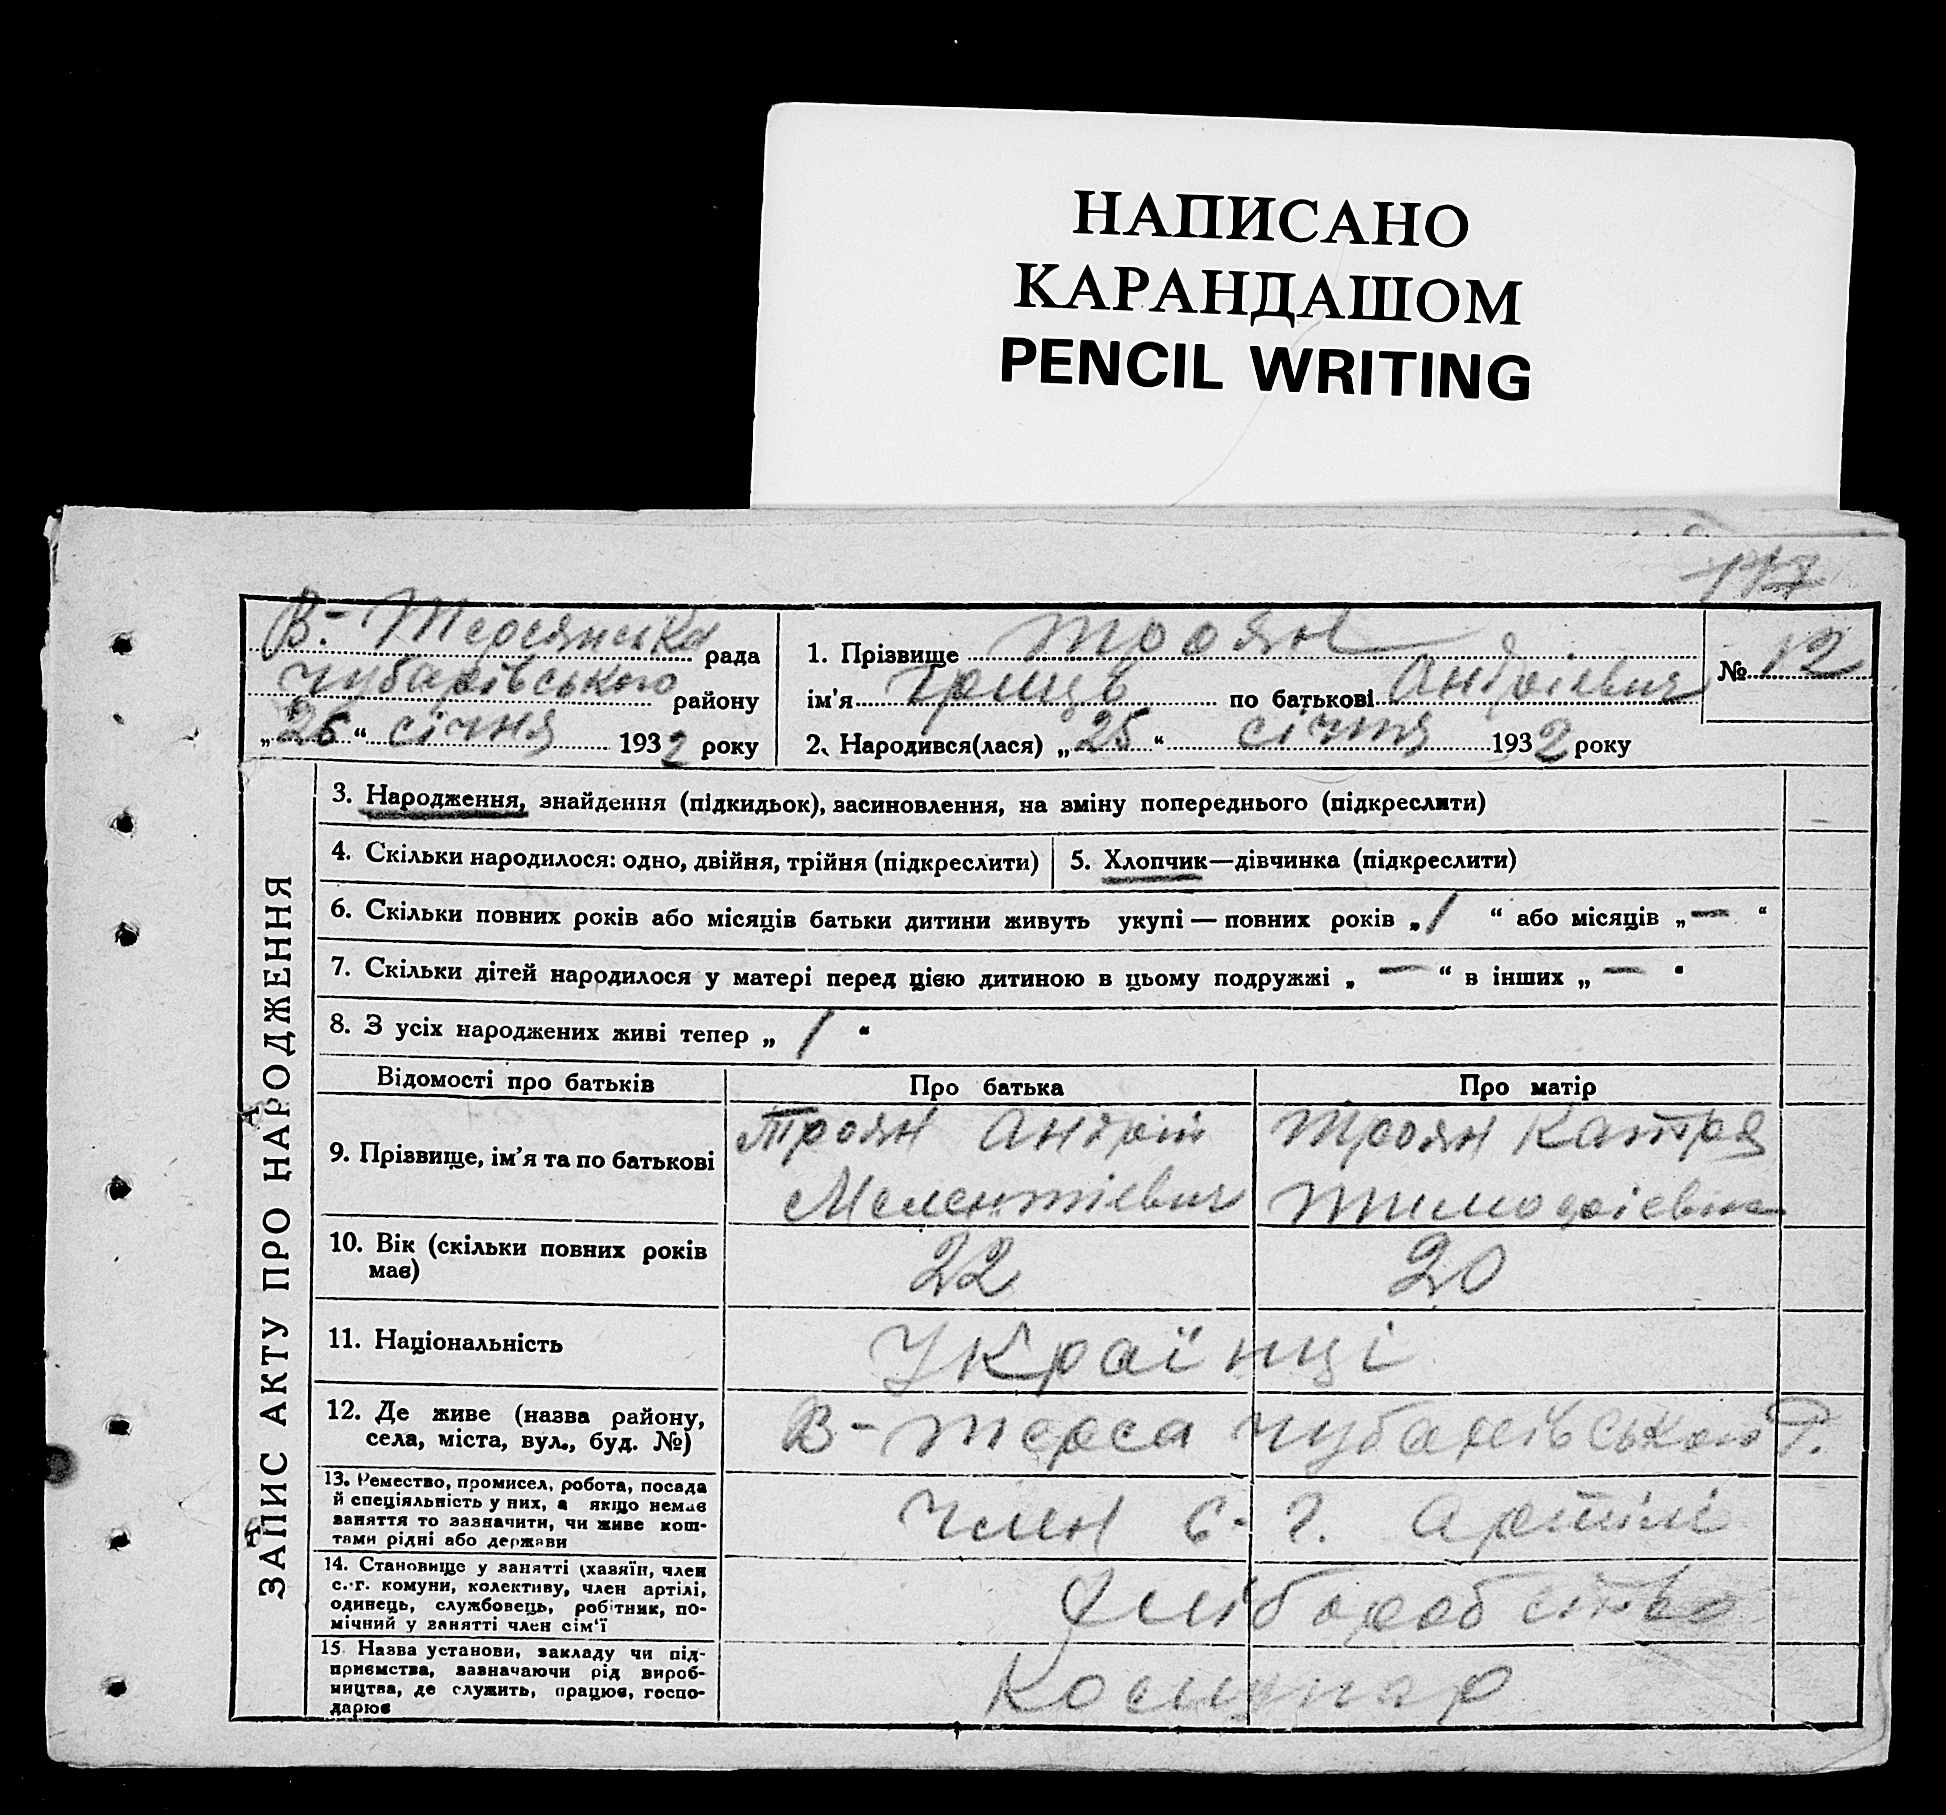 НАПИСАНО
КАРАНДАШОМ
PENCIL WRITING
117
В.-Терсянська рада
Чубарівського району
„26“ січня 1932 року
1. Прізвище Троян
ім'я Гриць по батькові Андрієвич
№ 12
2. Народився(лася) „25“ січня 1932 року
ЗАПИС АКТУ ПРО НАРОДЖЕННЯ
3. Народження, знайдення (підкидьок), засиновлення, на зміну попереднього (підкреслити)
4. Скільки народилося: одно, двійня, трійня (підкреслити)
5. Хлопчик—дівчинка (підкреслити)
6. Скільки повних років або місяців батьки дитини живуть укупі — повних років „1“ або місяців „—“
7. Скільки дітей народилося у матері перед цією дитиною в цьому подружжі „—“ в інших „—“
8. З усіх народжених живі тепер „1“
Відомості про батьків
Про батька
Про матір
9. Прізвище, ім'я та по батькові
Троян Андрій
Мелентієвич
Троян Катря
Тимофієвна
10. Вік (скільки повних років
має)
22
20
11. Національність
Українці
12. Де живе (назва району,
села, міста, вул., буд. №)
В-Терса Чубарівського Р.
13. Ремество, промисел, робота, посада
й спеціяльність у них, а якщо немає
заняття то зазначити, чи живе кош-
тами рідні або держави
Член с.-г. артілі
14. Становище у занятті (хазяїн, член
с.-г. комуни, колективу, член артілі,
одинець, службовець, робітник, по-
мічний у занятті член сім'ї
Хліборобство
15. Назва установи, закладу чи під-
приємства, зазначаючи рід вироб-
ництва, де служить, працює, госпо-
дарює